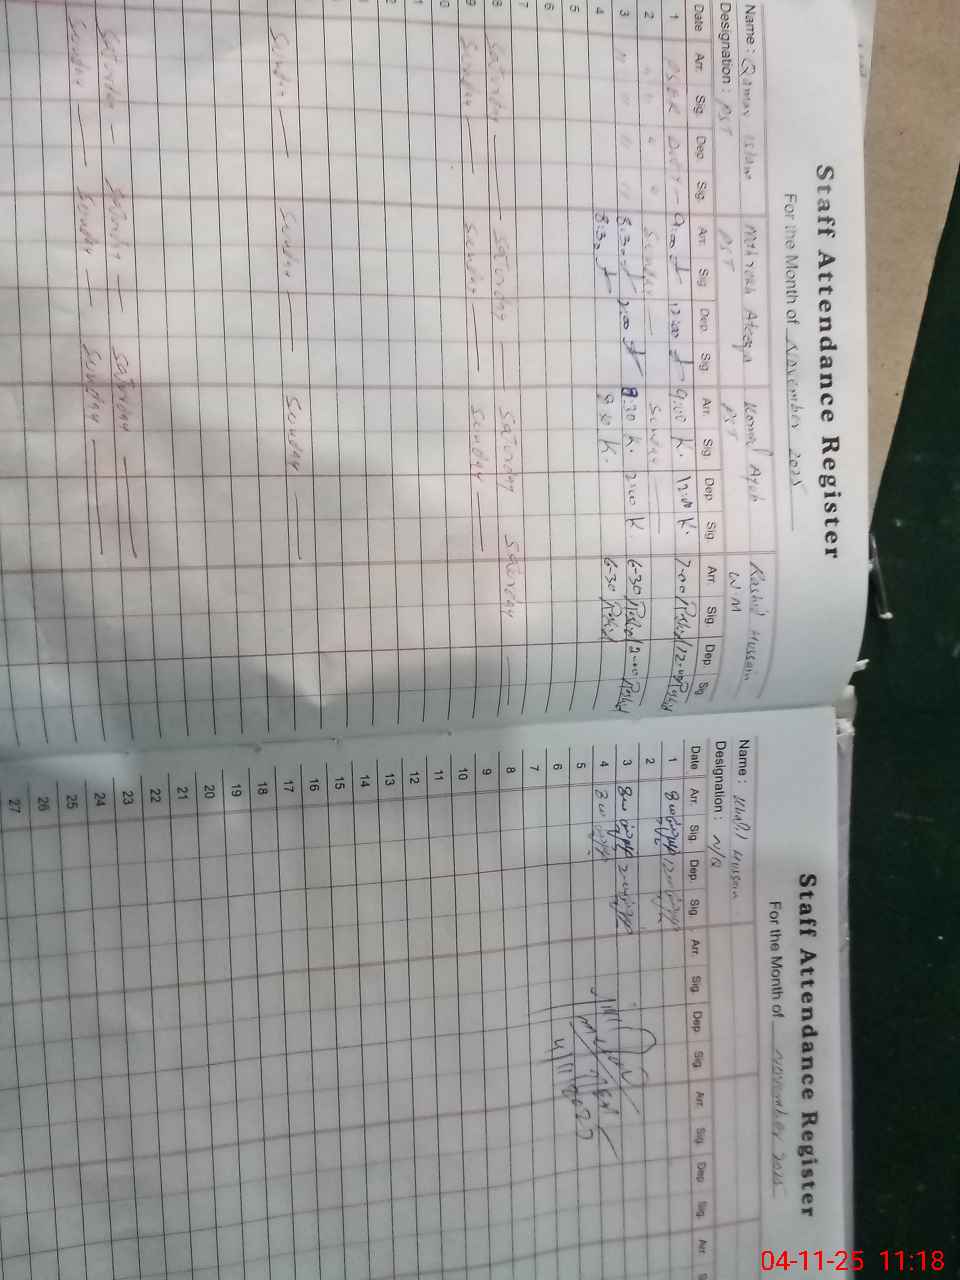 Staff Attendance Register
For the Month of November 2025
Name : Qamar Islam Mehnaz Ateeqa Komal Ayub Rashid Hussain
Designation : PST PST PST W.M
Date Arr. Sig. Dep. Sig. Arr. Sig. Dep. Sig. Arr. Sig. Dep. Sig. Arr. Sig. Dep. Sig.
1 Duty 9:00 12:00 9:00 K. 12:00 K. 7-00 Rashid 12-00 Rashid
2 " " " " Sunday Sunday
3 " " " " 8:30 2:00 8:30 K. 2:00 K. 6-30 Rashid 2-00 Rashid
4 8:30 8:30 K. 6-30 Rashid
5
6
7
8 Saturday Saturday Saturday Saturday
9 Sunday Sunday Sunday
Sunday Sunday Sunday
Saturday Saturday Saturday
Sunday Sunday Sunday
Staff Attendance Register
For the Month of November 2025
Name : Khalil Hussain
Designation : N/Q
Date Arr. Sig. Dep. Sig. Arr. Sig. Dep. Sig. Arr. Sig. Dep. Sig. Arr.
1 8 00 12 00
2
3 8 00 2 00
4 8 00
5
6 4/11/2025
7
8
9
10
11
12
13
14
15
16
17
18
19
20
21
22
23
24
25
26
27
04-11-25 11:18